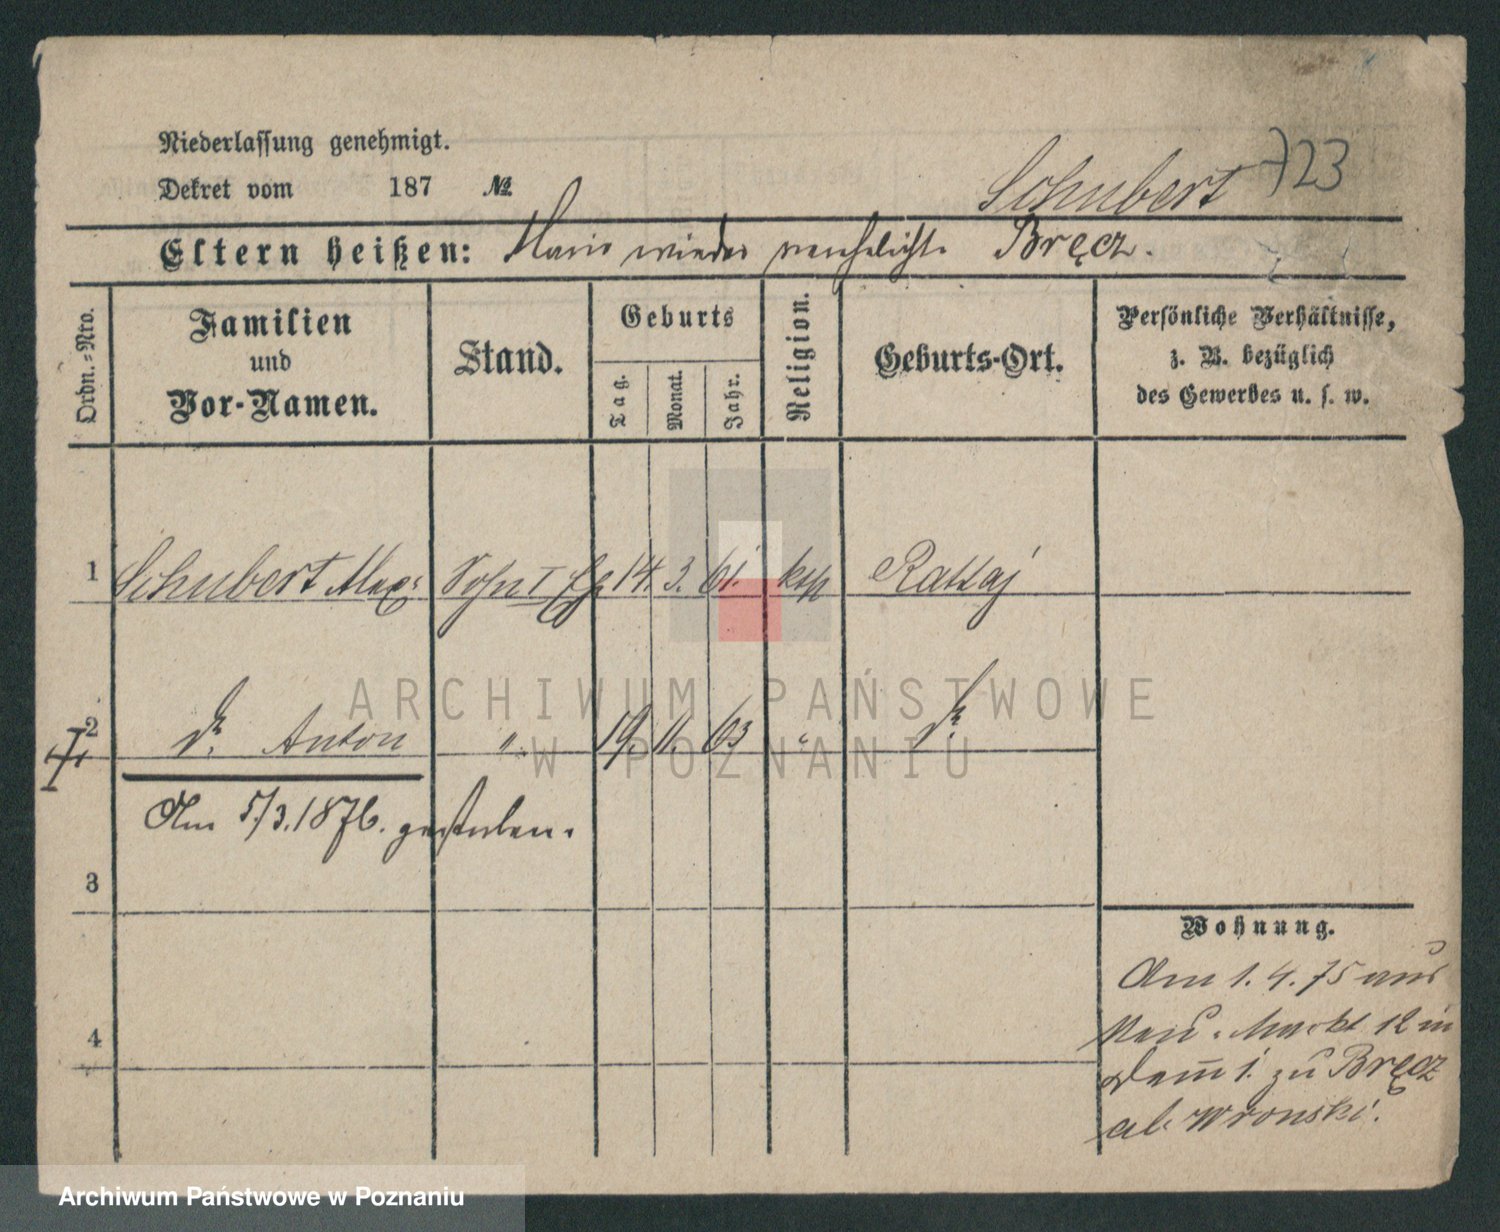 Niederlassung genehmigt.
Dekret vom 187 №
Schubert 723
Eltern heißen: wieder verehelichte Bręcz.
Ordn.-Nro.
Familien und Vor-Namen.
Stand.
Geburts
Tag.
Monat.
Jahr.
Religion.
Geburts-Ort.
Persönliche Verhältnisse,
z. B. bezüglich
des Gewerbes u. s. w.
1 Schubert Max Sohn I. Eh 14. 3. 61. kath Rattaj
2 do. Anton " 19. 11. 63 " do.
Am 5/3.1876. gestorben.
3
4
Wohnung.
Am 1.4.75 aus
Neu. Markt 12 in
Dam 1. zu Bręcz
ab Wronski.
ARCHIWUM PAŃSTWOWE
W POZNANIU
Archiwum Państwowe w Poznaniu